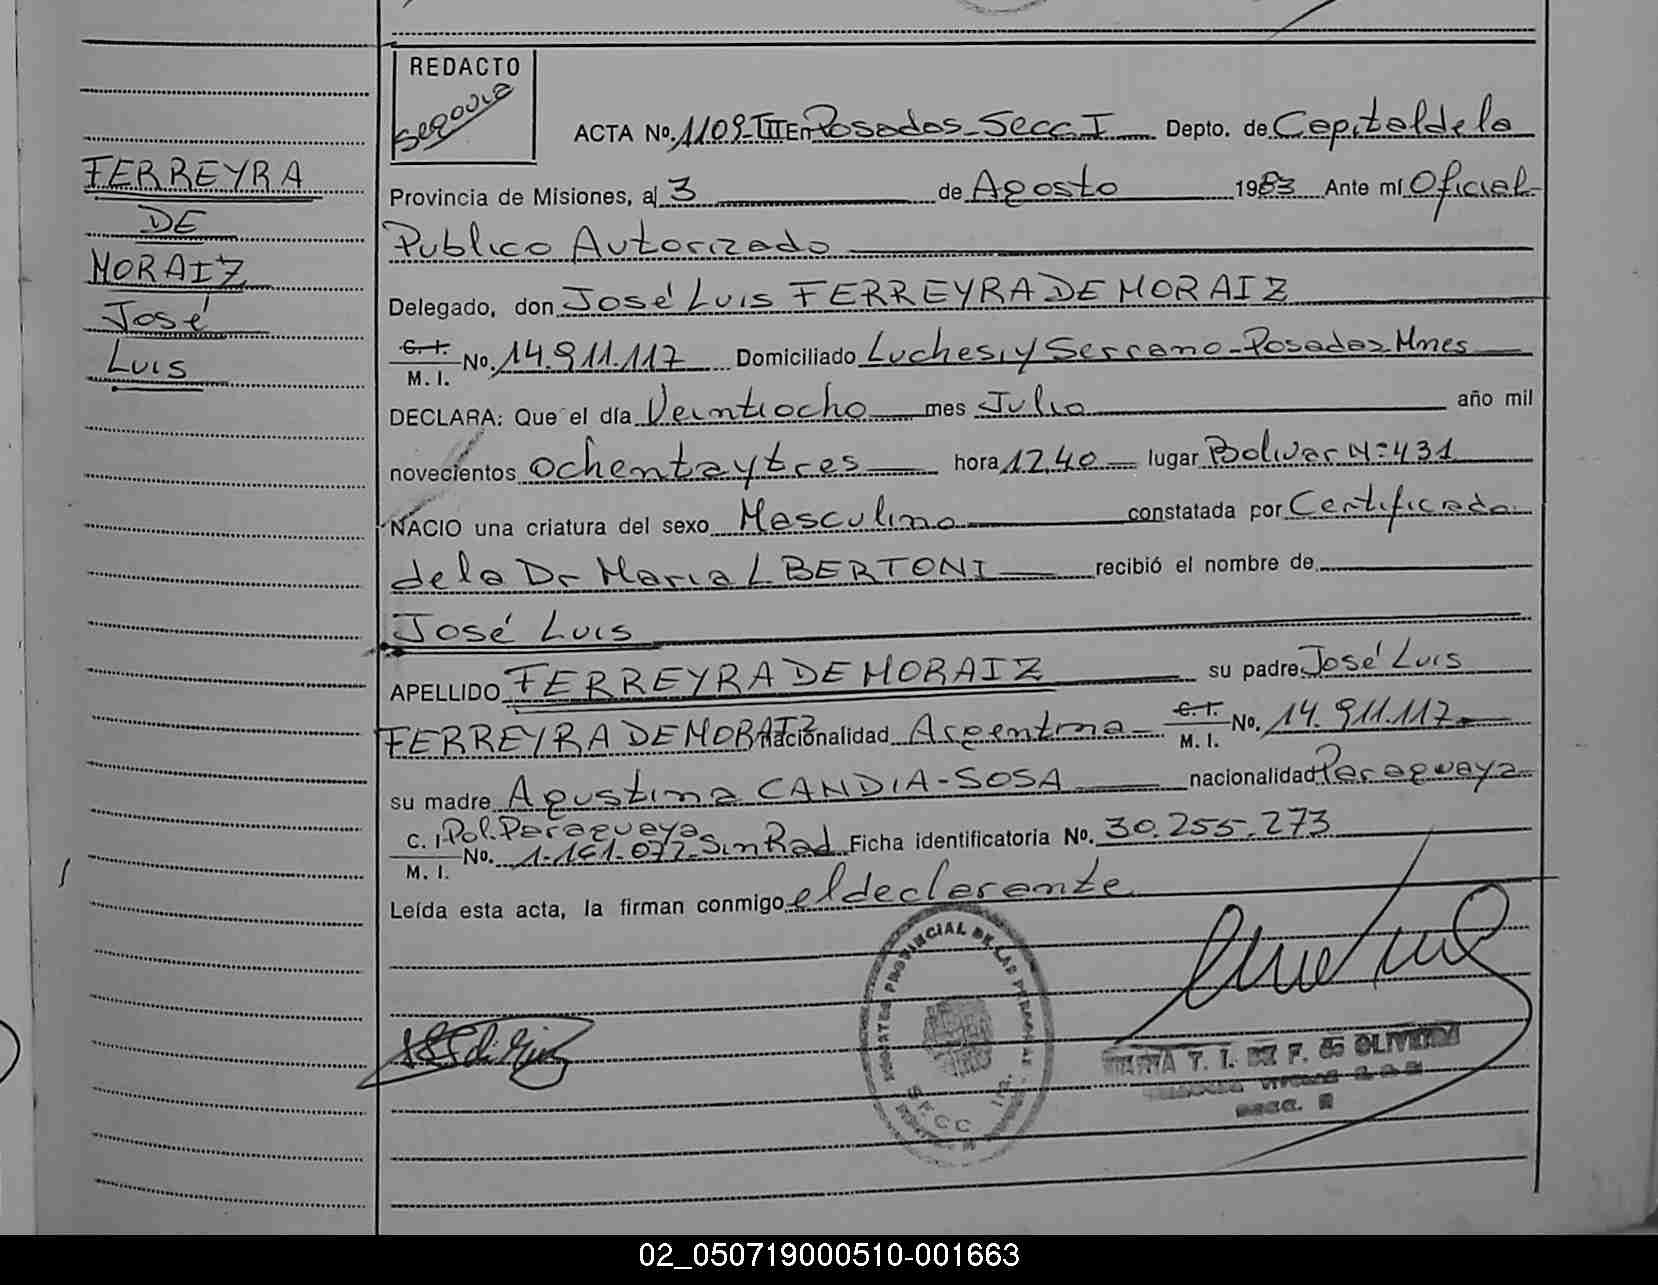 REDACTO
Segovia
ACTA No. 1109-III En Posadas-Secc I Depto. de Capital de la
FERREYRA
DE
MORAIZ
José
Luis
Provincia de Misiones, al 3 de Agosto 1983 Ante mí Oficial
Publico Autorizado
Delegado, don José Luis FERREYRA DE MORAIZ
C. I.
M. I. No. 14.911.117 Domiciliado Luchesi y Serrano-Posadas-Mnes
DECLARA: Que el día Veintiocho mes Julio año mil
novecientos ochenta y tres hora 12,40 lugar Bolivar Nº 431
NACIO una criatura del sexo Masculino constatada por Certificado
de la Dr Maria L BERTONI recibió el nombre de
José Luis
APELLIDO FERREYRA DE MORAIZ su padre José Luis
FERREYRA DE MORAIZ nacionalidad Argentina C. I. M. I. No. 14.911.117
su madre Agustina CANDIA-SOSA nacionalidad Paraguaya
C. I. Pol. Paraguaya
M. I. No. 1.161.072 Sin Rad Ficha identificatoria No. 30.255.273
Leída esta acta, la firman conmigo el declarante
PROVINCIAL DE LAS PERSONAS
T. I. DE F. de OLIVEIRA
02_050719000510-001663